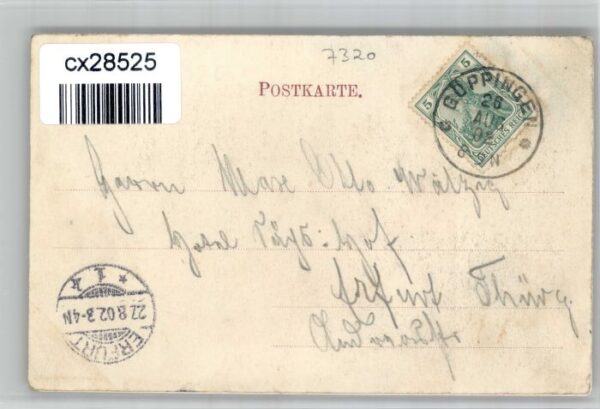 cx28525
7320
POSTKARTE.
5 5
DEUTSCHES REICH
GÖPPINGEN
26
AU
02
8 N
Herrn Max Otto
Hotel
Erfurt Thürg
ERFURT
* 1 k
27.8.02.3-4N